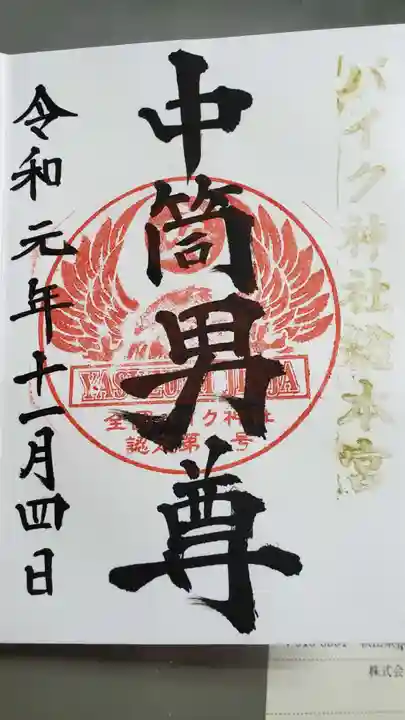 バイク神社総本宮
中筒男尊
YASUZUMI JINJA
全国バイク神社
認定第一号
令和元年十一月四日
株式会